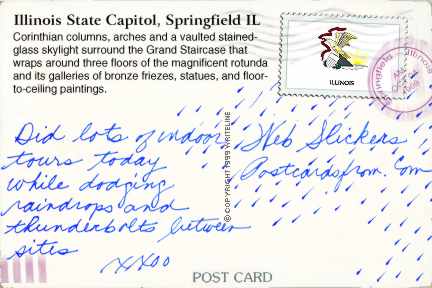 Illinois State Capitol, Springfield IL
Corinthian columns, arches and a vaulted stained-
glass skylight surround the Grand Staircase that
wraps around three floors of the magnificent rotunda
and its galleries of bronze friezes, statues, and floor-
to-ceiling paintings.
ILLINOIS
Springfield
Illinois
AM
1999
Did lots of indoor
tours today
while dodging
raindrops and
thunderbolts between
sites
xxoo
© COPYRIGHT 1999 WRITELINE
Web Slickers
Postcardsfrom.com
POST CARD